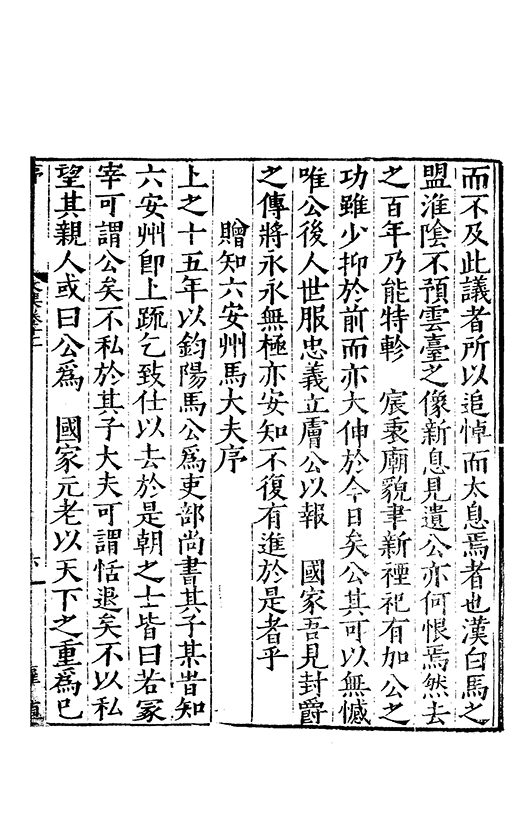 而不及此議者所以追悼而太息焉者也漢白馬之
盟淮陰不預雲臺之像新息見遺公亦何恨焉然去
之百年乃能特軫　宸衷廟貌聿新禋祀有加公之
功雖少抑於前而亦大伸於今日矣公其可以無憾
唯公後人世服忠義立膚公以報　國家吾見封爵
之傳將永永無極亦安知不復有進於是者乎
贈知六安州馬大夫序
上之十五年以鈞陽馬公爲吏部尚書其子某昔知
六安州卽上疏乞致仕以去於是朝之士皆曰若冢
宰可謂公矣不私於其子大夫可謂恬退矣不以私
望其親人或曰公爲　國家元老以天下之重爲已
六